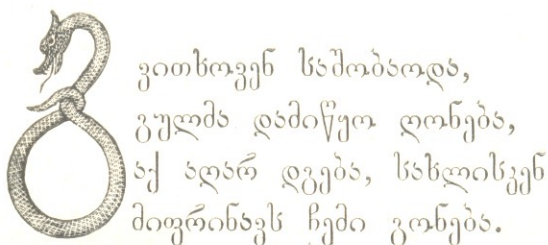 გვითხოვენ საშობაოდა,
გულმა დამიწყო ღონება,
აქ აღარ დგება, სახლისკენ
მიფრინავს ჩემი გონება.